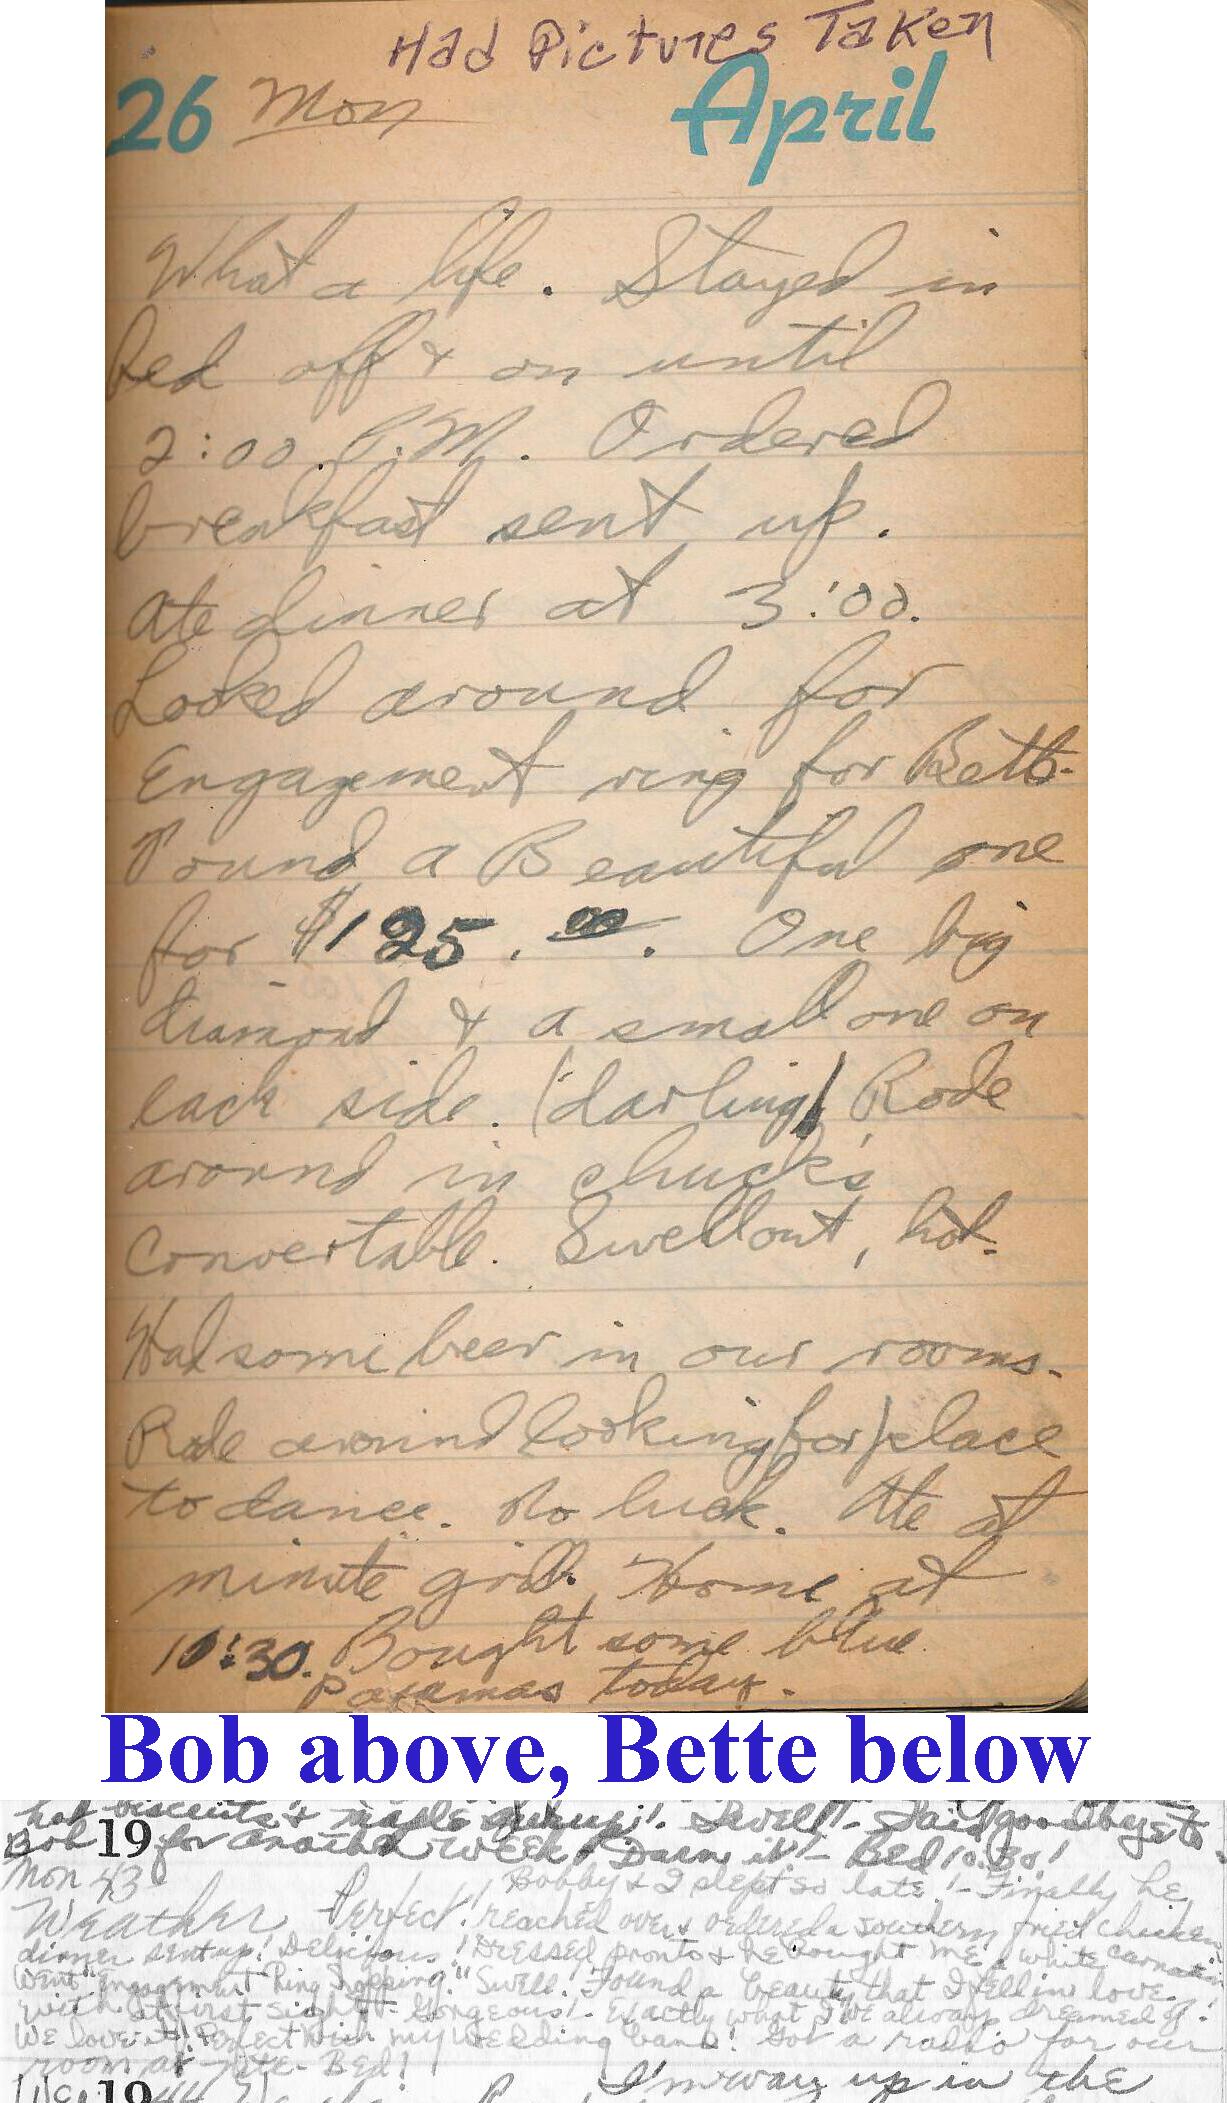 Had Pictures Taken
26 Mon April
What a life. Stayed in
bed off & on until
2:00 P.M. Ordered
breakfast sent up.
Ate dinner at 3:00.
Looked around for
Engagement ring for Bette.
Found a Beautiful one
for $125.00. One big
diamond & a small one on
each side. (darling) Rode
around in chuck's
convertable. Swell out, hot.
Had some beer in our rooms.
Rode around looking for place
to dance. No luck. Ate at
minute grill. Home at
10:30. Bought some blue
Pajamas today.
Bob above, Bette below
hot biscuits & maple Swell! - Said goodbye to
Bob 19 for another week! Darn it! - Bed 10:30!
Mon 43 Bobby & I slept so late! - Finally he
Weather Perfect! reached over & ordered a southern fried chicken
dinner sent up! Delicious! Dressed pronto & he bought me a white carnation
Went "Engagement Ring Shopping." Swell! Found a beauty that I fell in love
with at first sight - Gorgeous! - Exactly what I've always dreamed of!
We love it! Perfect with my wedding band! Got a radio for our
room at - Bed!
19 44 I'm way up in the